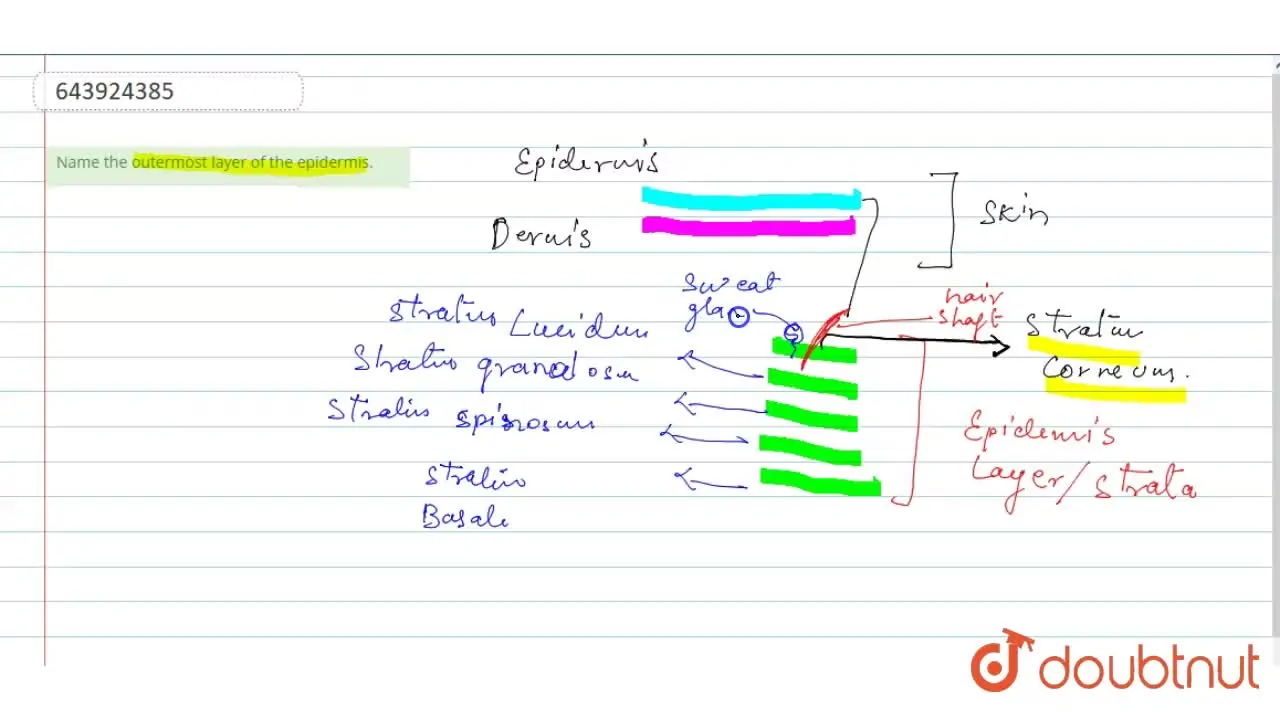 643924385
Name the outermost layer of the epidermis.
Epidermis
Dermis
Skin
Sweat
gla
hair
shaft
Stratum
Corneum.
Stratum Lucidum
Stratum granulosum
Stratum spinosum
Stratum
Basale
Epidermis
Layer/strata
doubtnut